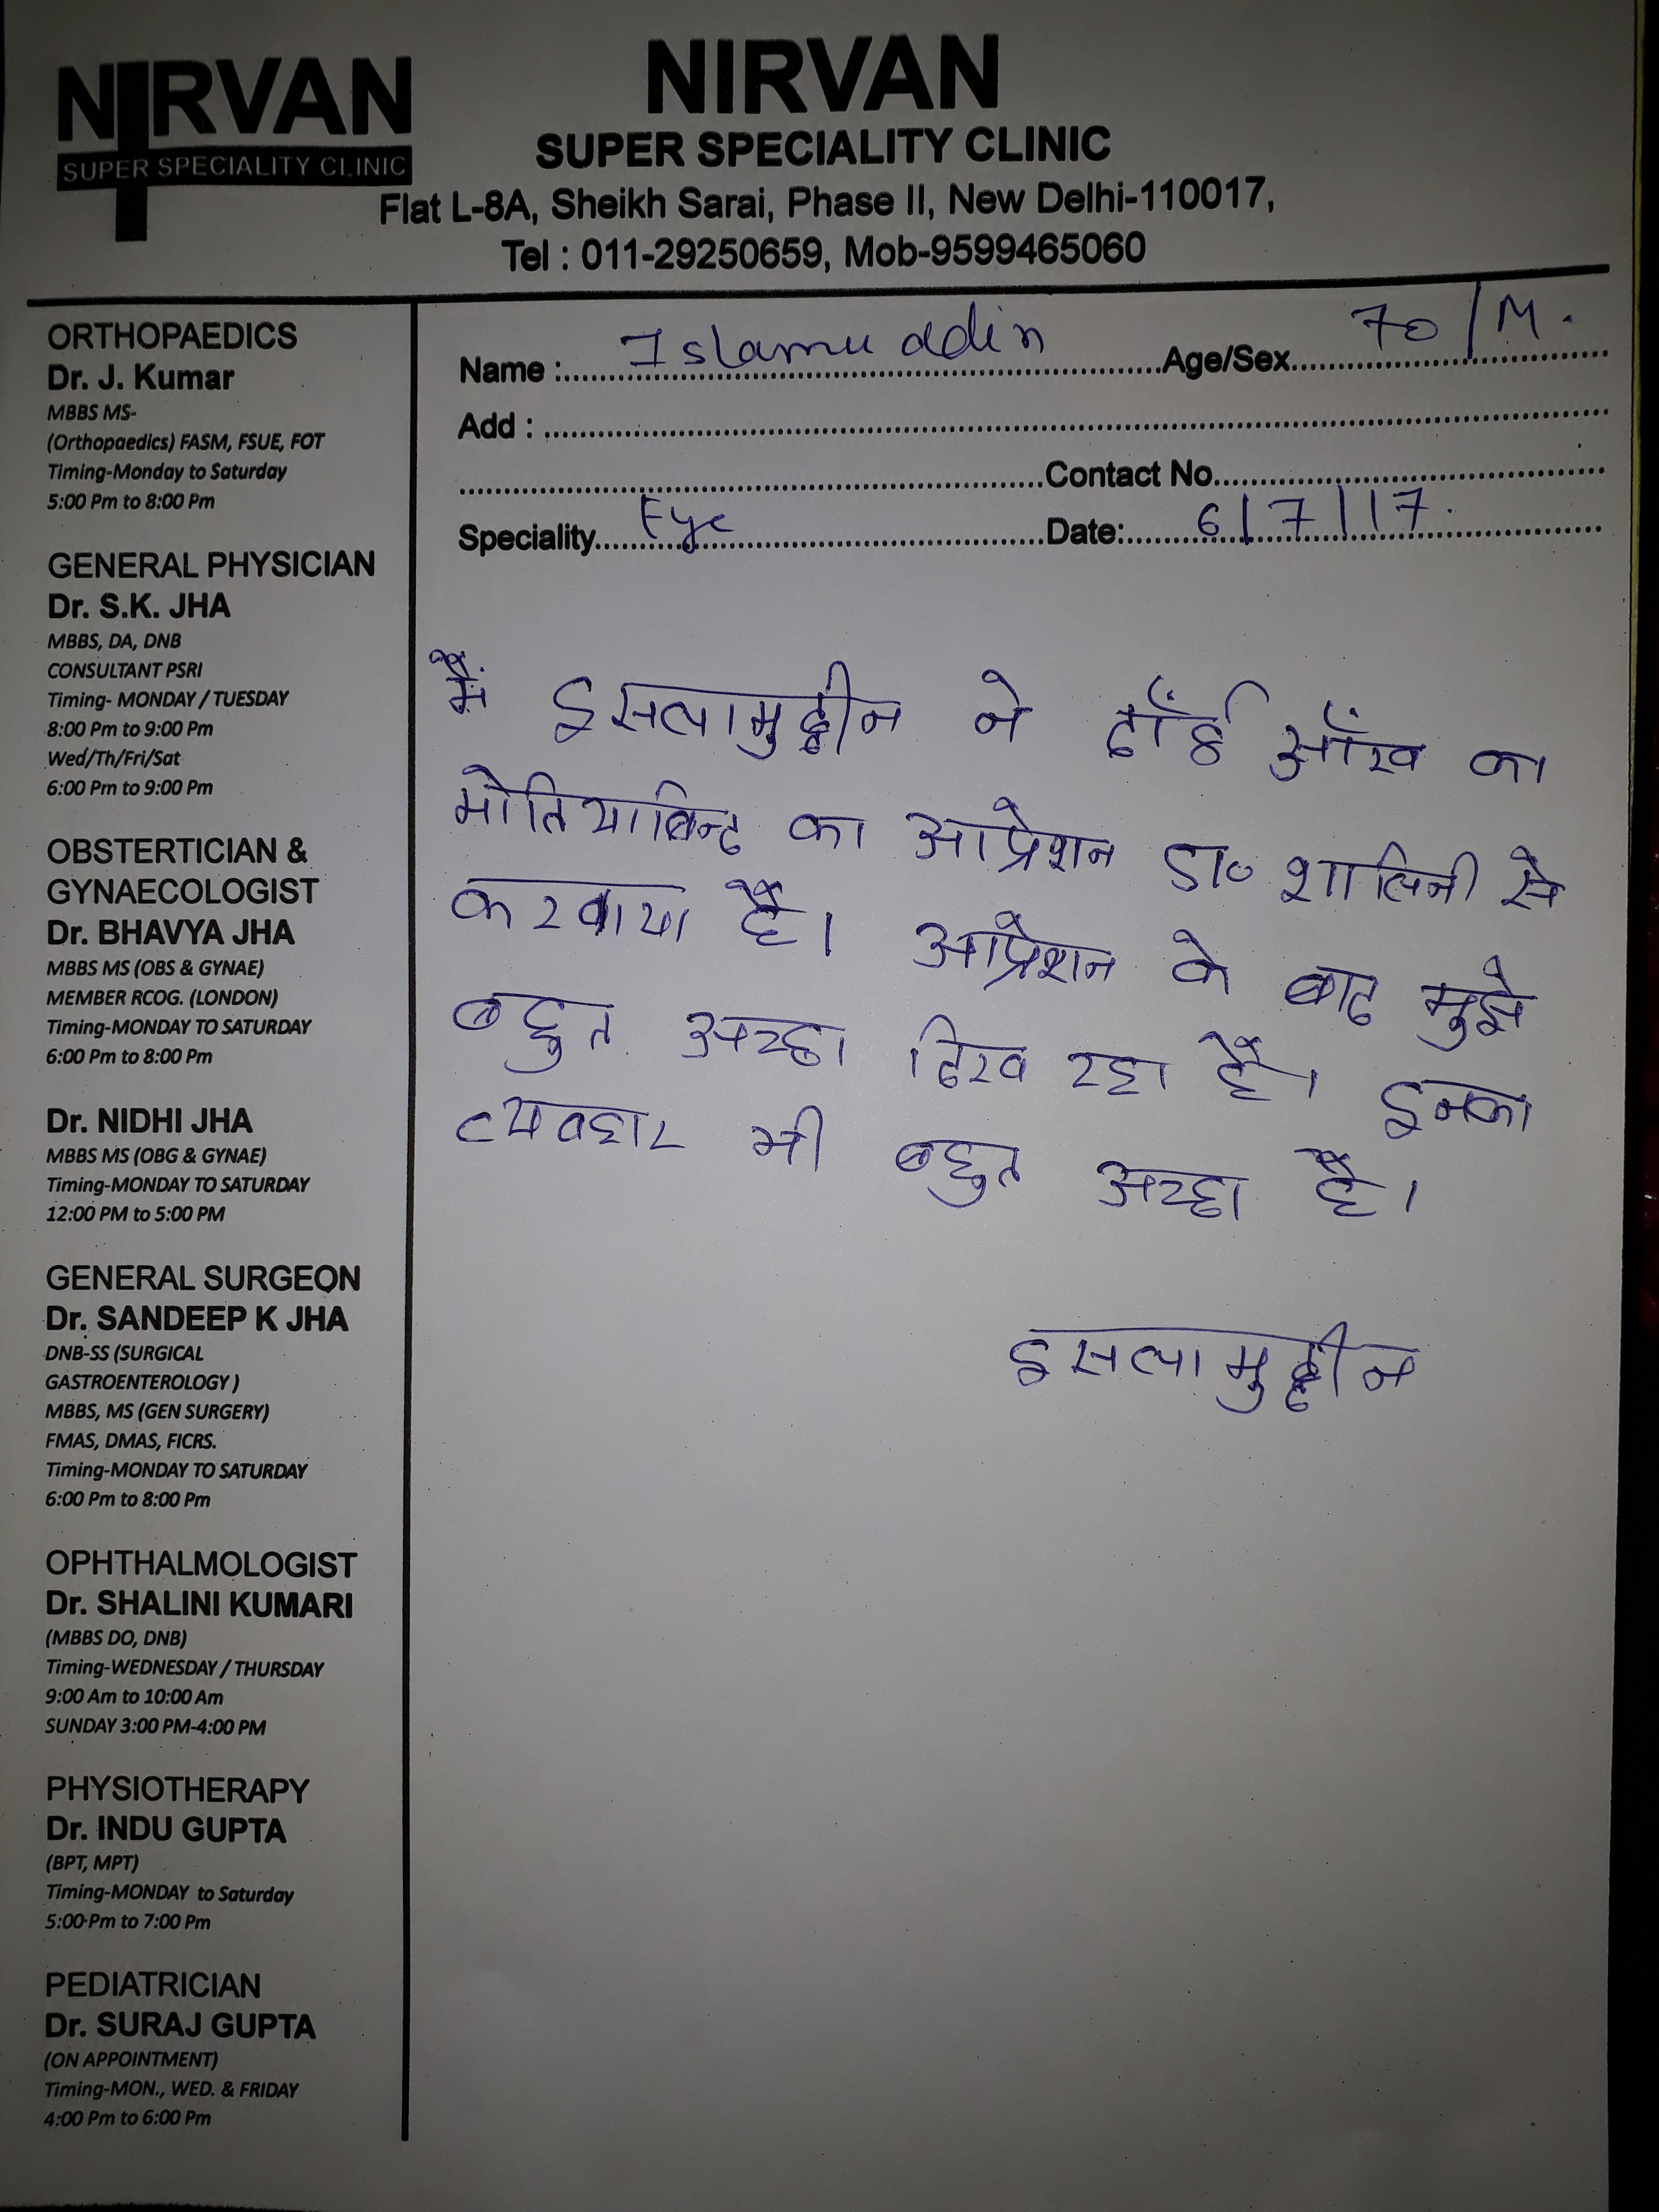 NIRVAN
SUPER SPECIALITY CLINIC
NIRVAN
SUPER SPECIALITY CLINIC
Flat L-8A, Sheikh Sarai, Phase II, New Delhi-110017,
Tel : 011-29250659, Mob-9599465060
ORTHOPAEDICS
Dr. J. Kumar
MBBS MS-
(Orthopaedics) FASM, FSUE, FOT
Timing-Monday to Saturday
5:00 Pm to 8:00 Pm
GENERAL PHYSICIAN
Dr. S.K. JHA
MBBS, DA, DNB
CONSULTANT PSRI
Timing- MONDAY / TUESDAY
8:00 Pm to 9:00 Pm
Wed/Th/Fri/Sat
6:00 Pm to 9:00 Pm
OBSTERTICIAN &
GYNAECOLOGIST
Dr. BHAVYA JHA
MBBS MS (OBS & GYNAE)
MEMBER RCOG. (LONDON)
Timing-MONDAY TO SATURDAY
6:00 Pm to 8:00 Pm
Dr. NIDHI JHA
MBBS MS (OBG & GYNAE)
Timing-MONDAY TO SATURDAY
12:00 PM to 5:00 PM
GENERAL SURGEON
Dr. SANDEEP K JHA
DNB-SS (SURGICAL
GASTROENTEROLOGY )
MBBS, MS (GEN SURGERY)
FMAS, DMAS, FICRS.
Timing-MONDAY TO SATURDAY
6:00 Pm to 8:00 Pm
OPHTHALMOLOGIST
Dr. SHALINI KUMARI
(MBBS DO, DNB)
Timing-WEDNESDAY / THURSDAY
9:00 Am to 10:00 Am
SUNDAY 3:00 PM-4:00 PM
PHYSIOTHERAPY
Dr. INDU GUPTA
(BPT, MPT)
Timing-MONDAY to Saturday
5:00 Pm to 7:00 Pm
PEDIATRICIAN
Dr. SURAJ GUPTA
(ON APPOINTMENT)
Timing-MON., WED. & FRIDAY
4:00 Pm to 6:00 Pm
Name : Islamuddin Age/Sex 70/M.
Add :
Contact No.
Speciality Eye Date: 6/7/17.
मैं इसलामुद्दीन ने दाँई आँख का
मोतियाबिन्द का आप्रेशन डा० शालिनी से
करवाया है। आप्रेशन के बाद मुझे
बहुत अच्छा दिख रहा है। इनका
व्यवहार भी बहुत अच्छा है।
इसलामुद्दीन